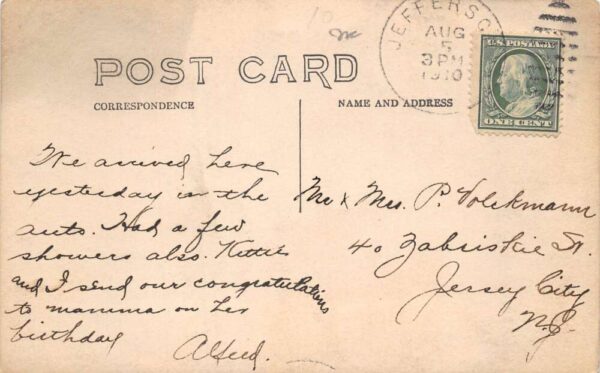 10 me
JEFFERSO
AUG
5
3 PM
1910
U.S. POSTAGE
ONE CENT
POST CARD
CORRESPONDENCE
NAME AND ADDRESS
We arrived here
yesterday in the
auto. Had a few
showers also. Kittie
and I send our congratulations
to mamma on her
birthday
Alfred.
Mr & Mrs. P. Volckmann
40 Zabriskie St.
Jersey City
N.J.